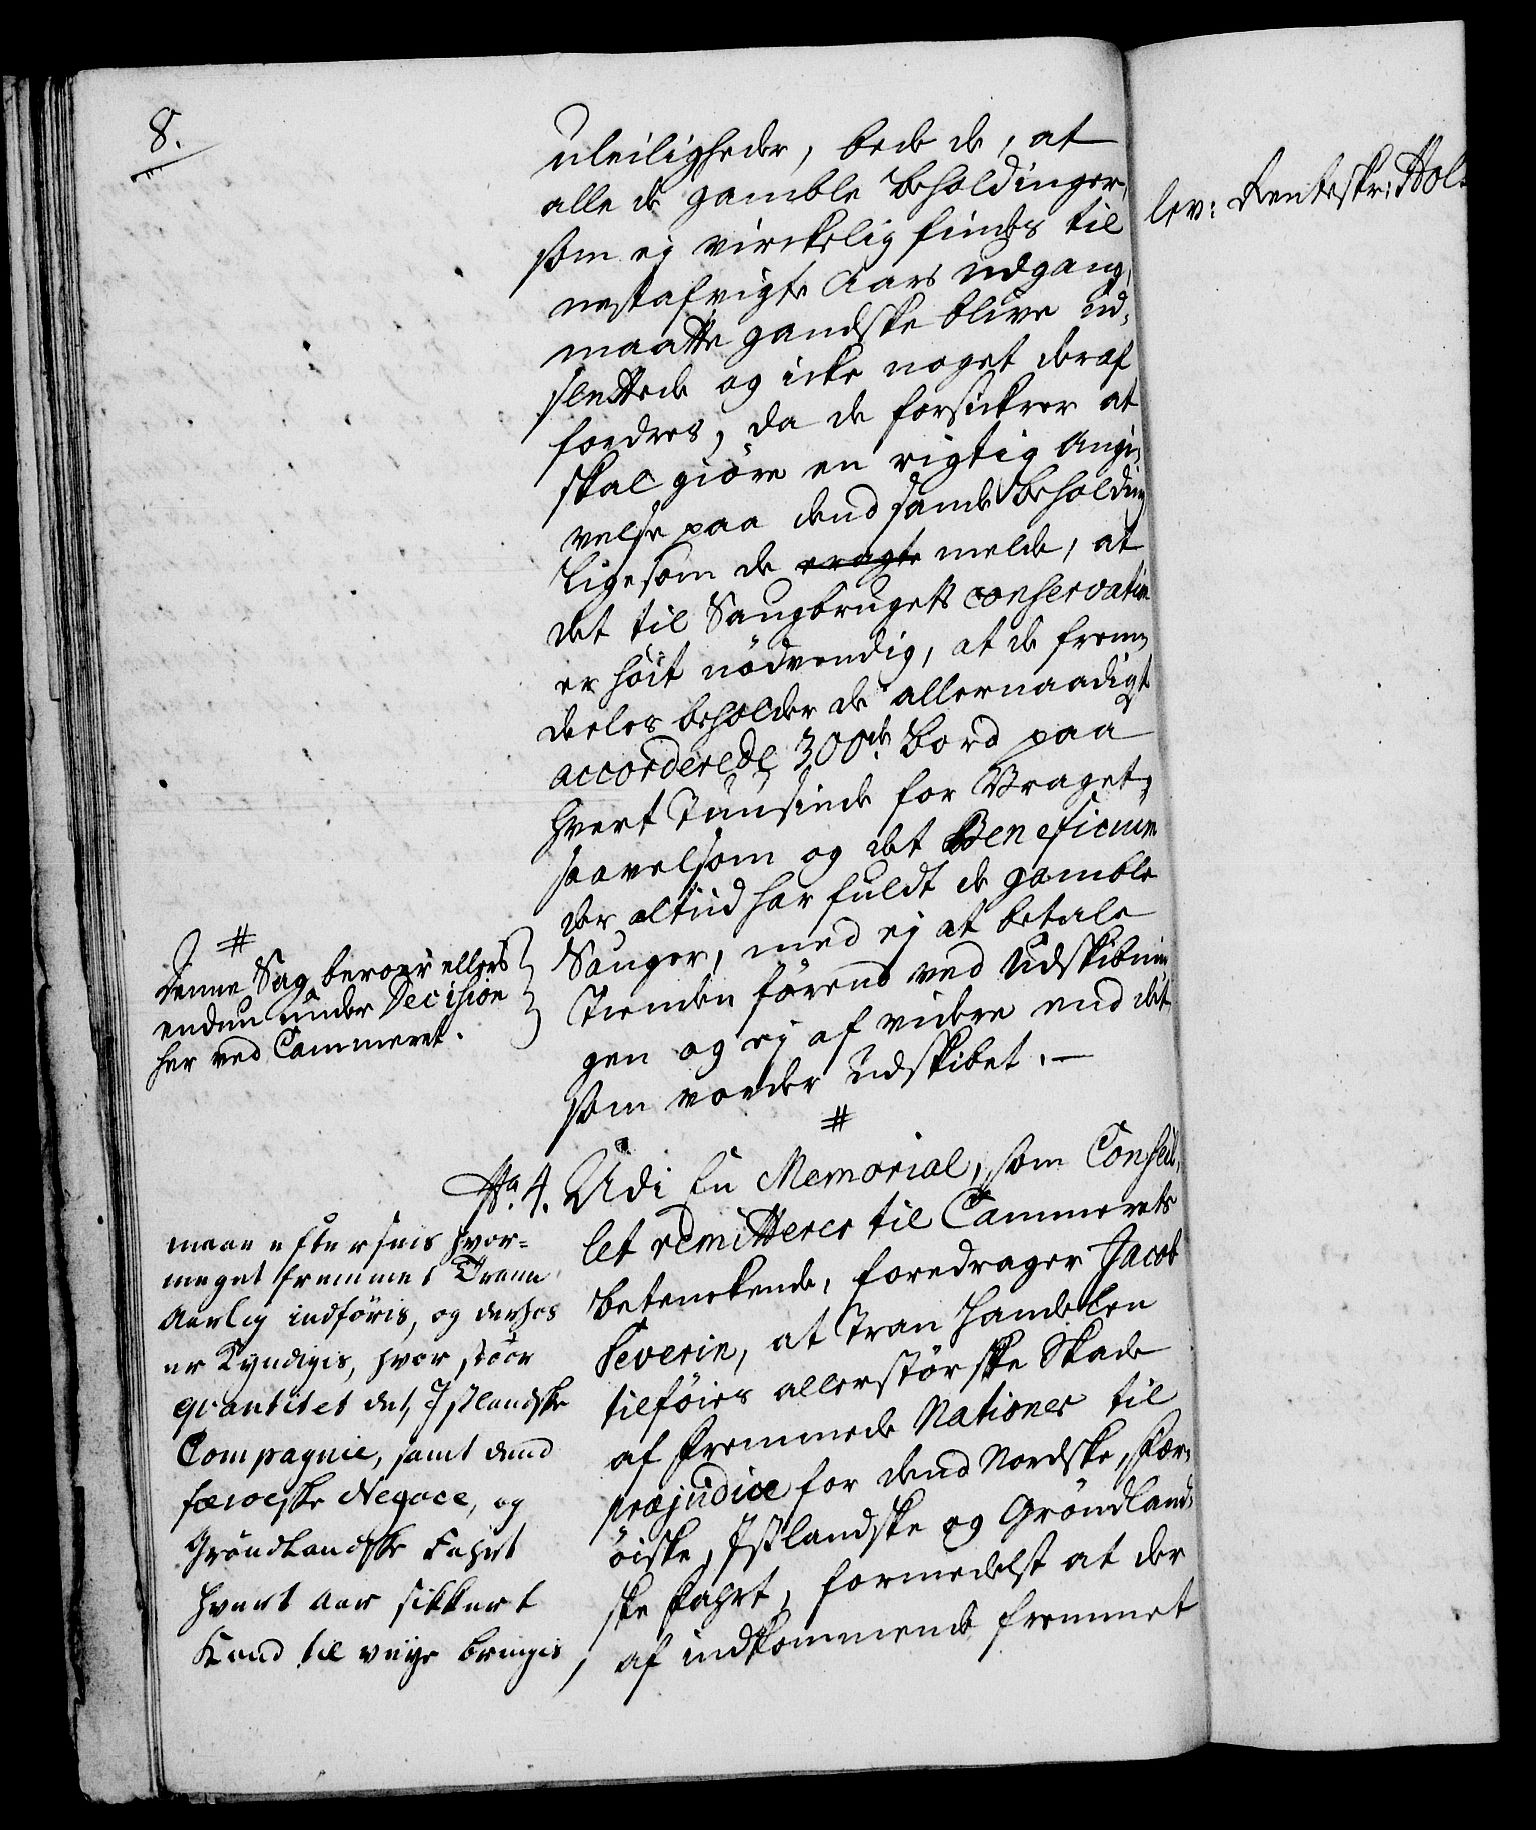 8.
uleiligheder, bede de, at
alle de gamble Beholdinger,
som ej virckelig findes til
nestafvigte Aars udgang,
maatte gandske blive ud,
slettede og icke noget deraf
fordres, da de forsickrer at
skal giöre en rigtig Angi,
velse paa dend sande Beholding
Ligesom de eragte melde, at
det til Saugbrugets conservation
er höit nödvendig, at de frem,
deeles beholder de allernaadigst
accorderede 300de Bord paa
hvert Tusinde for Vraget,
saavelsom og det Beneficium
der altiid har fuldt de gamble
Sauger, med ej at betale
Tienden förend ved Udskibnin,
gen og ej af videre end det
som vorder Udskibet. —
#
#
Denne Sag beroer ellers
endnu under Decision
her ved Cammeret.
No. 4. Udi En Memorial, som Conseil,
let remitterer til Cammerets
Betenckende, foredrager Jacob
Severin, at Tran Handelen
tilföies allerstörste Skade
af fremmede Nationer til
præjudice for dend Nordske, Fær,
öiske, Isslandske og Gröndland,
ske Fahrt, formedelst at der
af indkommende fremmet
maae eftersees hvor=
meget fremmet Trann
Aarlig indföris, og derhos
er Kyndigis, hvor stoor
qvantitet det Isslandske
Compagnie, samt dend
færoeske Negoce, og
Gröndlandske Fahrt
hvert aar sikkert
Kand til veiye bringis,
lev: Renteskr: Hol